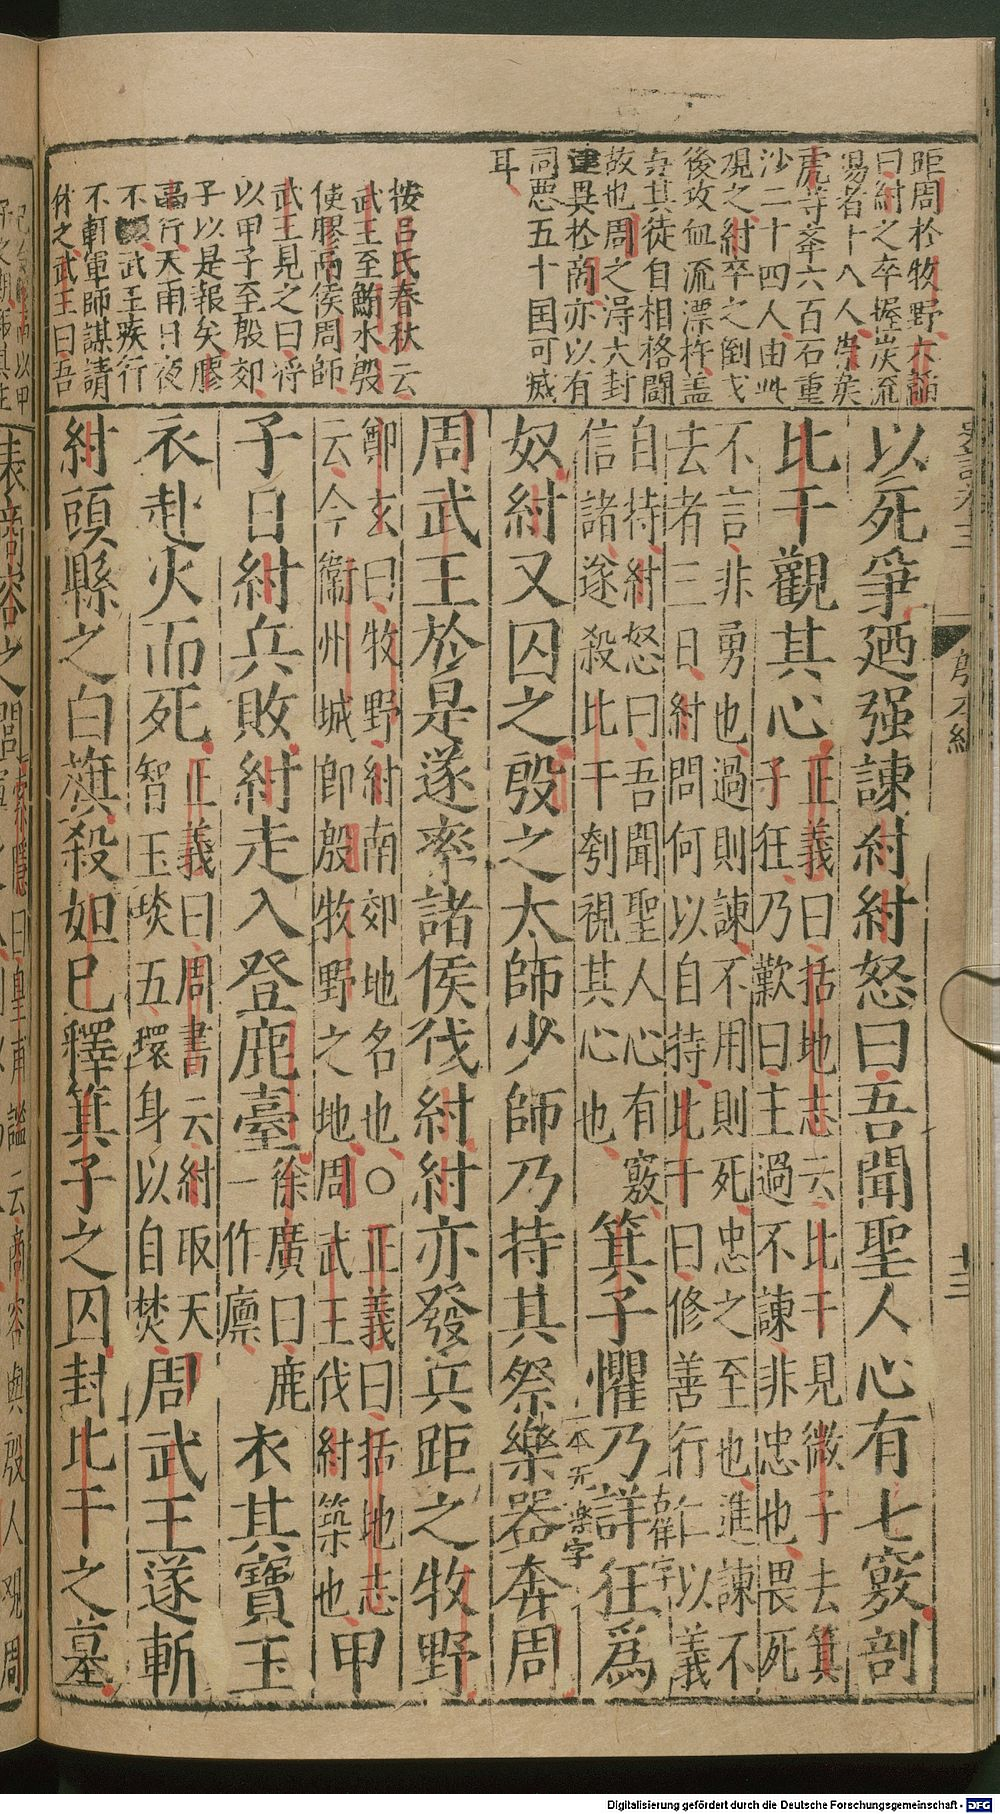 距周於牧野六韜
曰紂之卒握炭流
湯者十八人崇矦
虎等舉六百石重
沙二十四人由此
觀之紂卒之倒戈
後攻血流漂杵盖
其徒自相格鬭
故也周之淂大封
建異於商亦以有
同惡五十国可烕
耳
按吕氏春秋云
武王至鮪水殷
使膠鬲侯周師
武王見之曰将
以甲子至殷郊
子以是報矣膠
鬲行天雨日夜
不武王疾行
不輟軍師諌請
休之武王曰吾
以死爭廼强諫紂紂怒曰吾聞聖人心有七竅剖
比干觀其心
正義曰括地志云比干見微子去箕
子狂乃歎曰主過不諫非忠也畏死
不言非勇也過則諫不用則死忠之至也進諫不
去者三日紂問何以自持比干曰修善行仁以義
自持紂怒曰吾聞聖人心有竅
信諸遂殺比干刳視其心也
箕子懼乃詳狂爲
奴紂又囚之殷之太師少師乃持其祭樂器奔周
一本无樂字
周武王於是遂率諸侯伐紂紂亦發兵距之牧野
鄭玄曰牧野紂南郊地名也○正義曰括地志
云今衞州城即殷牧野之地周武王伐紂築也
甲
子日紂兵敗紂走入登鹿臺
徐廣曰鹿
一作廪
衣其寶玉
衣赴火而死
正義曰周書云紂取天
智玉琰五環身以自焚
周武王遂斬
紂頭縣之白旗殺妲己釋箕子之囚封比干之墓
殷本紀
十三
表商容之閭
索隱曰皇甫謐云商容與殷人觀周
Digitalisierung gefördert durch die Deutsche Forschungsgemeinschaft - DFG